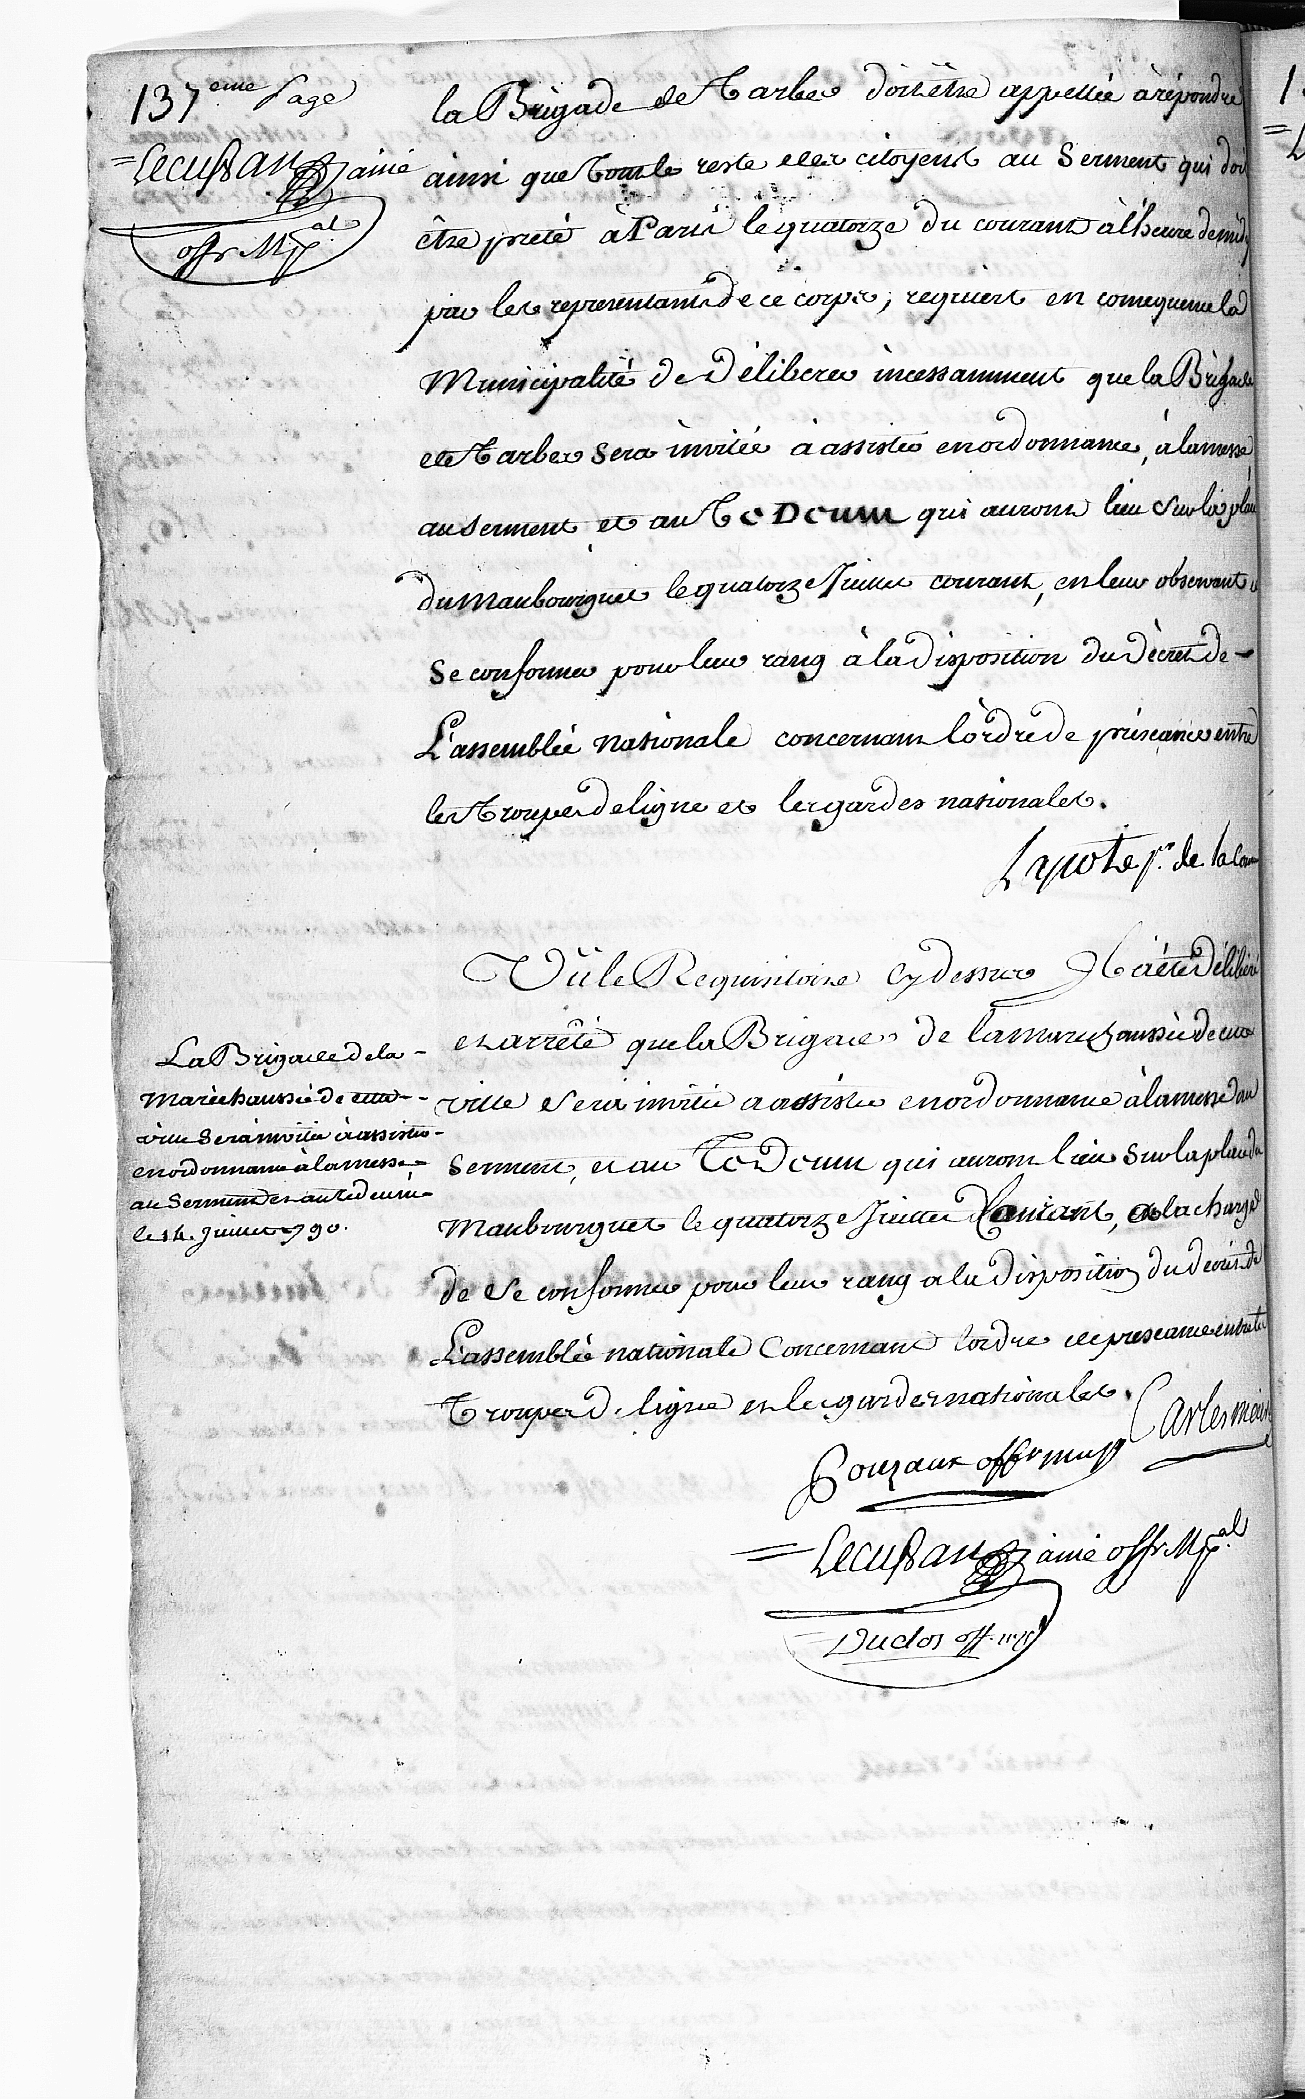 137eme Page
=Lecussan ainé
offr Mpal
la Brigade de Tarbes doit être appellée à répondre
ainsi que tout le reste des citoyens au Serment qui doit
être prété à Paris le quatorze du courant à l'heure de midy
par les representants de ce corps; requiert en consequence la
Municipalité de Déliberer incessamment que la Brigade
de Tarbes Sera invitée à assister en ordonnance, à la messe
au Serment et au Te Deum qui auront lieu Sur la place
du Maubourguet le quatorze Juillet courant, en leur observant
Se conformer pour leur rang à la Disposition du Décret de
L'assemblée nationale concernant l'ordre de préséance entre
les Troupes de ligne et les gardes nationales.
pr. de la com
Vu le Requisitoire Cy dessus Il a été Délibéré
et arrêté que la Brigade de la marechaussée de cette
ville Sera invitée a assister en ordonnance à la messe au
Serment, et au Te Deum qui auront lieu Sur la place du
Maubourguet le quatorze Juillet Courant, a la charge
de Se conformer pour leur rang a la Disposition du Decret de
L'assemblée nationale Concernant l'ordre de preseance entre les
Troupes de ligne et les gardes nationales.
La Brigade de la
Maréchaussée de cette
ville Sera invitée à assister
en ordonnance à la messe
au Serment et au te deum
le 14. Juillet 1790.
Carles maire
Couzaux offr mup
=Lecussan ainé offr Mpal
Duclos off. mpl